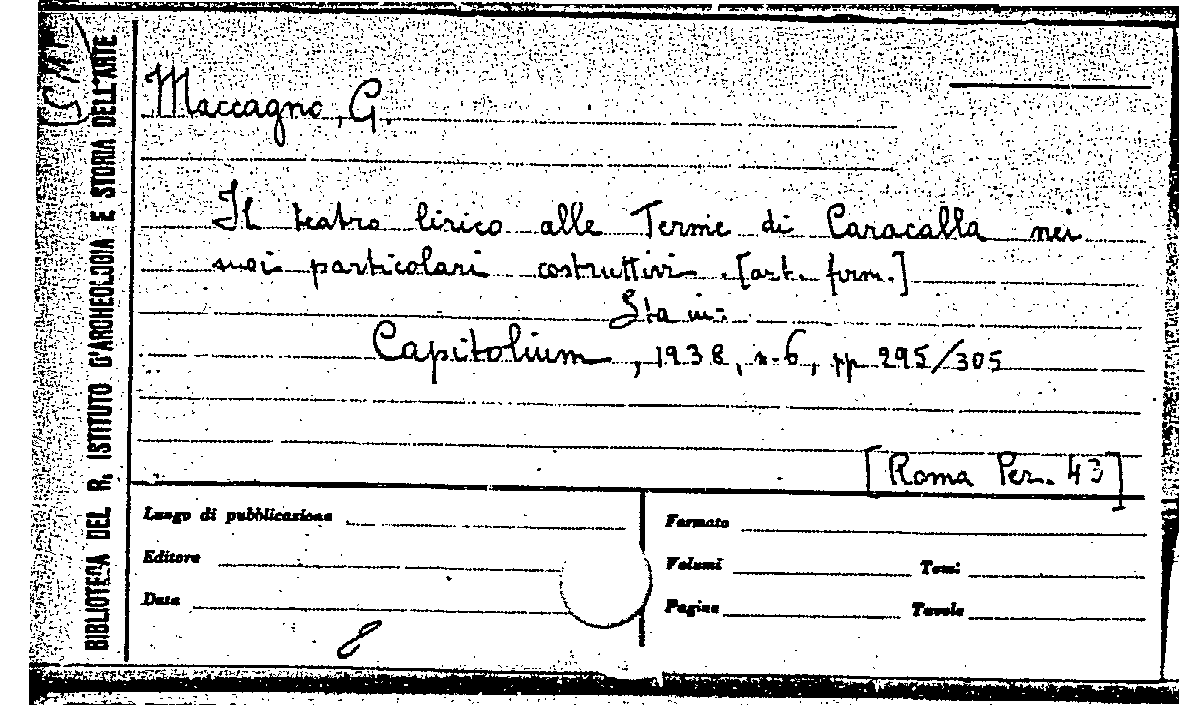 BIBLIOTECA DEL R. ISTITUTO D'ARCHEOLOGIA E STORIA DELL'ARTE
Maccagno, G.
Il teatro lirico alle Terme di Caracalla nei
suoi particolari costruttivi. [art. firm.]
Sta in:
Capitolium, 1938, n. 6, pp 295/305
[Roma Per. 43]
Luogo di pubblicazione
Editore
Data
Formato
Volumi Tomi
Pagine Tavole
8